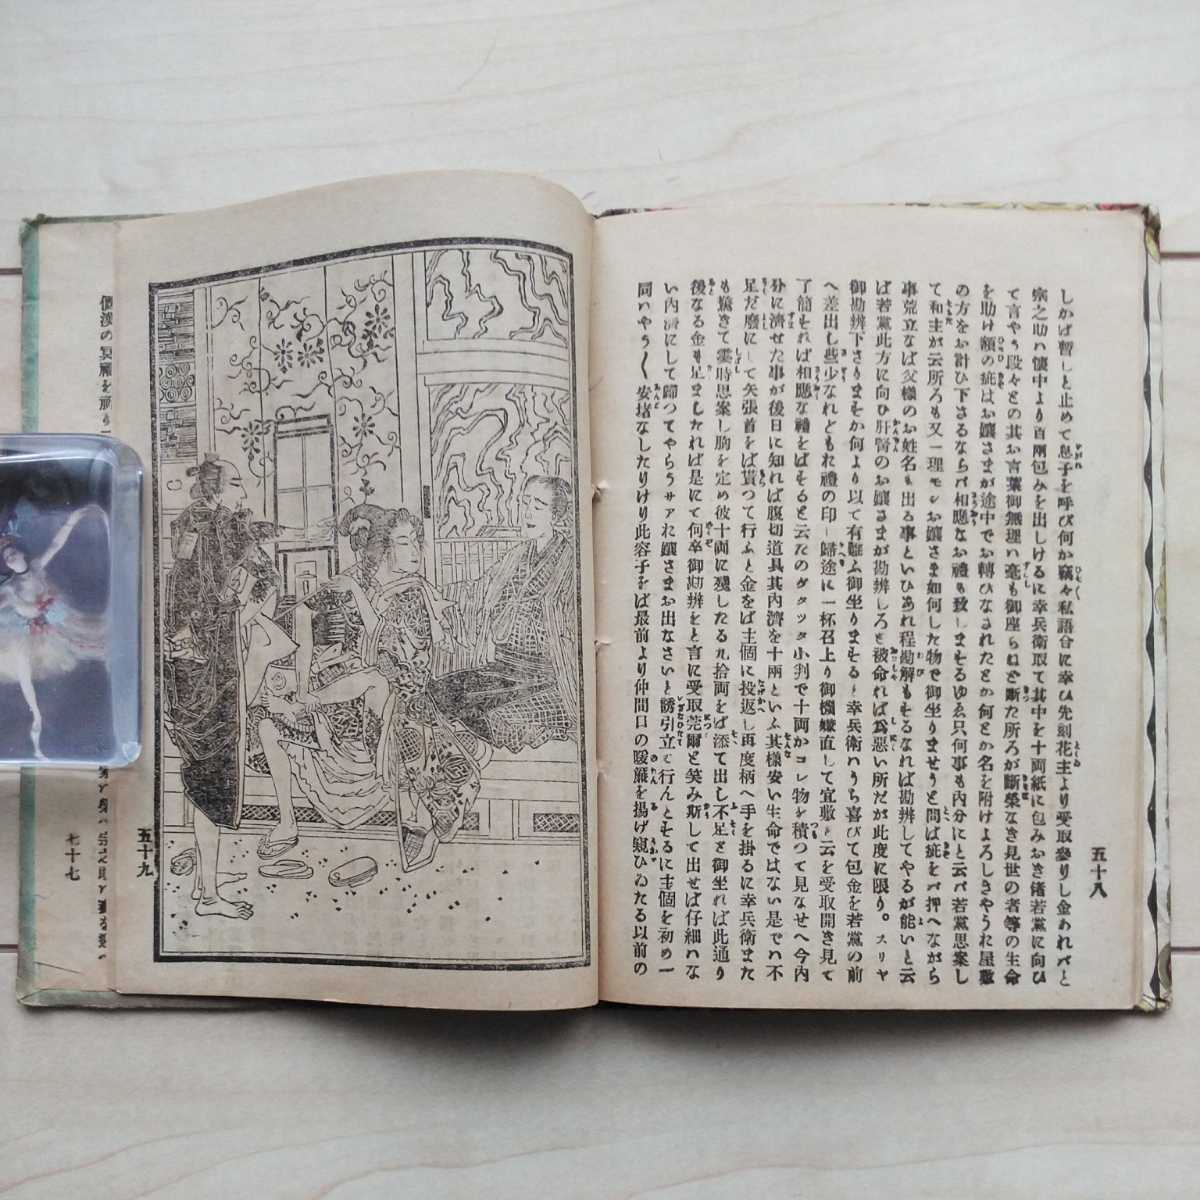 五十八
しかば暫しと止めて息子を呼び何か竊々私語合に幸ひ先刻花主より受取參りし金あればと
宗之助ハ懷中より百兩包みを出しけるに幸兵衛取て其中を十両紙に包みおき偖若黨に向ひ
て言やう段々との其お言葉御無理ハ毫も御座らねど斷た所ろが斷榮なき見世の者等の生命
を助け額の疵はお孃さまが途中でお轉びなされたとか何とか名を附けよろしきやうに屋敷
の方をお計ひ下さるならバ和應なお禮も致しませうゆゑ只何事も内分にと云バ若黨思案し
て和主が云所ろも又一理モシお孃さま如何した物で御坐りませうと問ば疵をバ押へながら
事荒立なば父樣のお姓名も出る事といひあれ程勘解もするなれば勘辨してやるが能いと云
ば若黨此方に向ひ肝腎のお孃さまが勘辨しろと被命れば爲惡い所だが此度に限り。スリヤ
御勘辨下さりまそか何より以て有難ふ御坐りまそると幸兵衛ハうち喜びて包金を若黨の前
へ差出し些少なれどもれ禮の印し歸途に一杯召上り御機嫌直して宜敷と云を受取開き見て
了簡それば和應な禮をばそると云たのダタッタ小判で十両かコレ物を積つて見なせへ今内
分に濟せた事が後日に知れば腹切道具其内濟を十兩といふ其樣安い生命ではない是でハ不
足だ廢にして矢張首をば貰つて行ふと金をば主個に投返し再度柄へ手を掛るに幸兵衛また
も驚きて霎時思案し胸を定め彼十両に殘したる九拾両をば添て出し不足と御坐れば此通り
後なる金も足ましたれば是にて何卒御勘辨をと言に受取莞爾と笑み斯して出せば仔細ハな
い内濟にして歸つてやらうサアれ孃さまお出なさいと誘引立て行んとそるに主個を初め一
同ハやうく安堵なしたりけり此容子をば最前より仲間口の暖簾を揚げ窺ひゐたる以前の
五十九
七十七